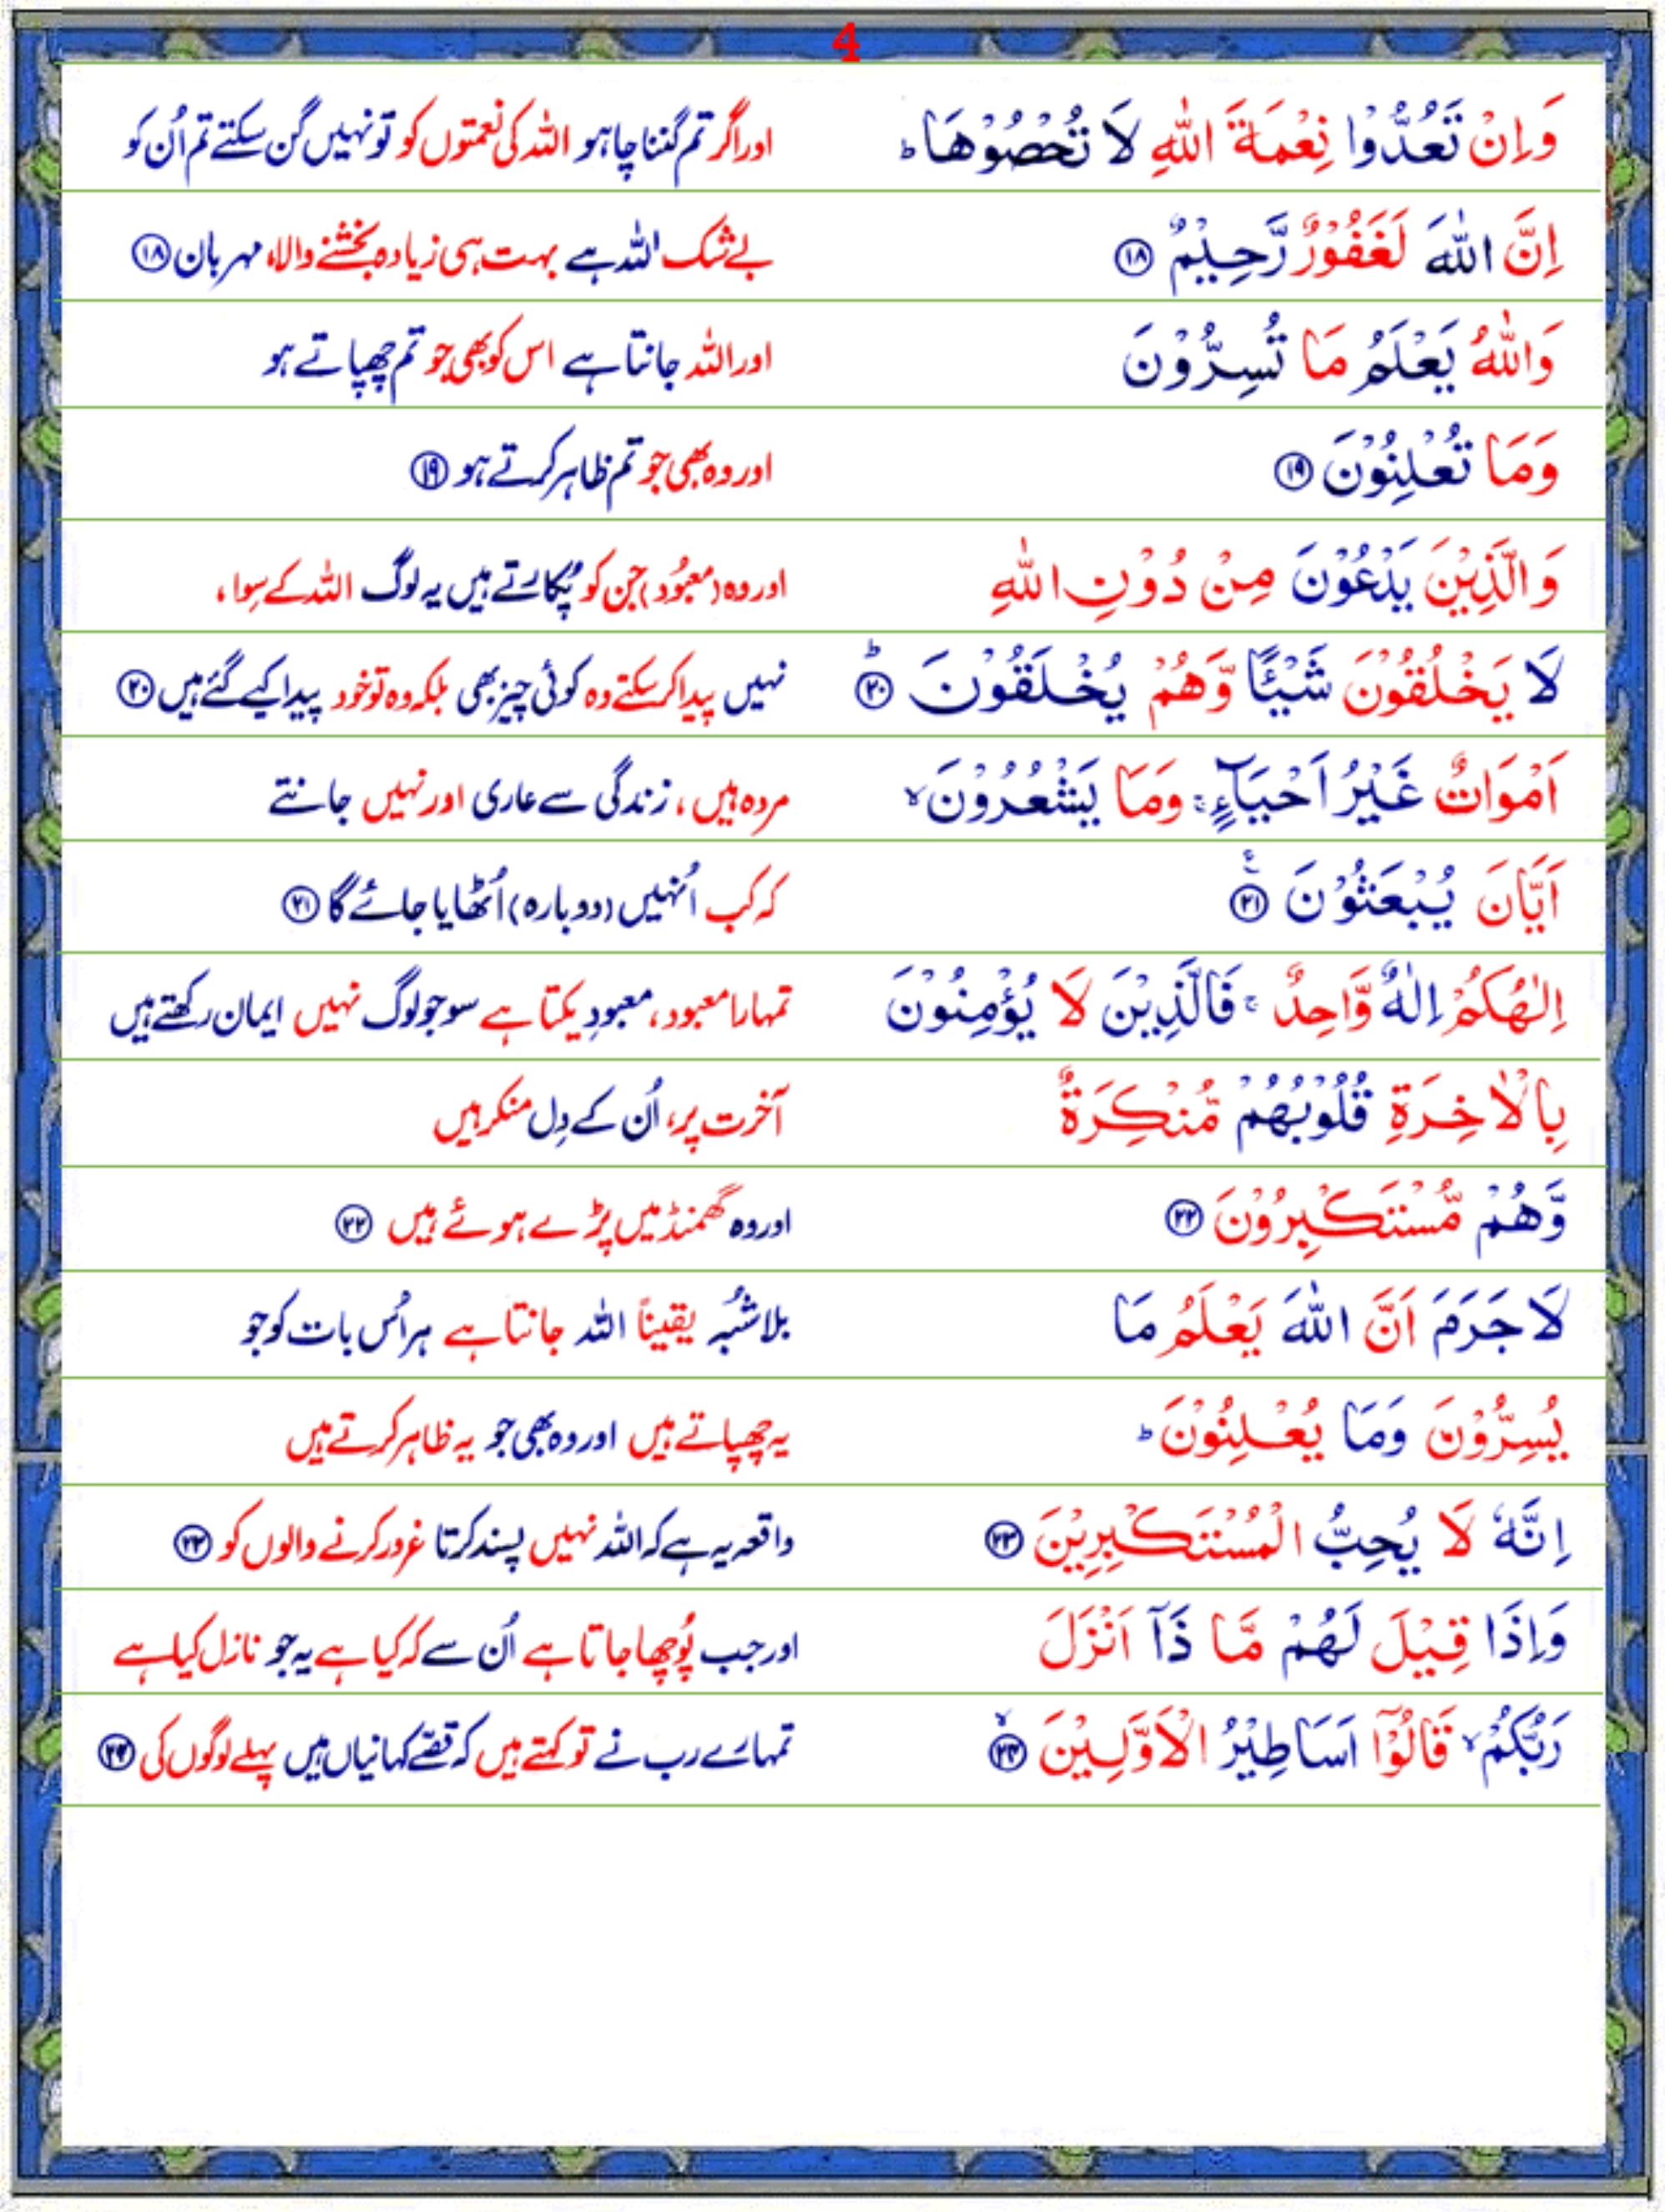 4
وَاِنْ تَعُدُّوْا نِعْمَةَ اللّٰهِ لَا تُحْصُوْهَا ؕ اور اگر تم گننا چاہو اللہ کی نعمتوں کو تو نہیں گن سکتے تم اُن کو
اِنَّ اللّٰهَ لَغَفُوْرٌ رَّحِيْمٌ ﴿۱۸﴾ بے شک اللہ ہے بہت ہی زیادہ بخشنے والا، مہربان ﴿۱۸﴾
وَاللّٰهُ يَعْلَمُ مَا تُسِرُّوْنَ اور اللہ جانتا ہے اس کو بھی جو تم چھپاتے ہو
وَمَا تُعْلِنُوْنَ ﴿۱۹﴾ اور وہ بھی جو تم ظاہر کرتے ہو ﴿۱۹﴾
وَالَّذِيْنَ يَدْعُوْنَ مِنْ دُوْنِ اللّٰهِ اور وہ (معبُود) جن کو پُکارتے ہیں یہ لوگ اللہ کے سِوا،
لَا يَخْلُقُوْنَ شَيْـًٔا وَّهُمْ يُخْلَقُوْنَ ؕ ﴿۲۰﴾ نہیں پیدا کر سکتے وہ کوئی چیز بھی بلکہ وہ تو خود پیدا کیے گئے ہیں ﴿۲۰﴾
اَمْوَاتٌ غَيْرُ اَحْيَآءٍ ۚ وَمَا يَشْعُرُوْنَ ۙ مردہ ہیں، زندگی سے عاری اور نہیں جانتے
اَيَّانَ يُبْعَثُوْنَ ﴿۲۱﴾ کہ کب اُنہیں (دوبارہ) اُٹھایا جائے گا ﴿۲۱﴾
اِلٰهُكُمْ اِلٰهٌ وَّاحِدٌ ۚ فَالَّذِيْنَ لَا يُؤْمِنُوْنَ تمہارا معبود، معبودِ یکتا ہے سو جو لوگ نہیں ایمان رکھتے ہیں
بِالْاٰخِرَةِ قُلُوْبُهُمْ مُّنْكِرَةٌ آخرت پر، اُن کے دِل منکر ہیں
وَّهُمْ مُّسْتَكْبِرُوْنَ ﴿۲۲﴾ اور وہ گھمنڈ میں پڑے ہوئے ہیں ﴿۲۲﴾
لَا جَرَمَ اَنَّ اللّٰهَ يَعْلَمُ مَا بلا شُبہ یقیناً اللہ جانتا ہے ہر اُس بات کو جو
يُسِرُّوْنَ وَمَا يُعْلِنُوْنَ ؕ یہ چھپاتے ہیں اور وہ بھی جو یہ ظاہر کرتے ہیں
اِنَّهٗ لَا يُحِبُّ الْمُسْتَكْبِرِيْنَ ﴿۲۳﴾ واقعہ یہ ہے کہ اللہ نہیں پسند کرتا غرور کرنے والوں کو ﴿۲۳﴾
وَاِذَا قِيْلَ لَهُمْ مَّا ذَآ اَنْزَلَ اور جب پُوچھا جاتا ہے اُن سے کہ کیا ہے یہ جو نازل کیا ہے
رَبُّكُمْ ۙ قَالُوْٓا اَسَاطِيْرُ الْاَوَّلِيْنَ ۙ ﴿۲۴﴾ تمہارے رب نے تو کہتے ہیں کہ قصّے کہانیاں ہیں پہلے لوگوں کی ﴿۲۴﴾